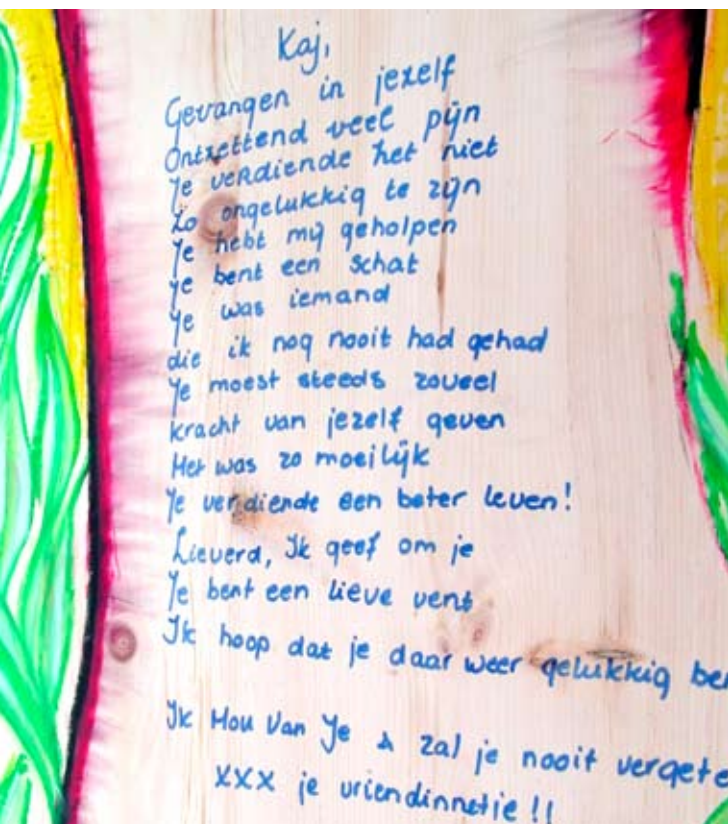 Kaj,
Gevangen in jezelf
Ontzettend veel pijn
Je verdiende het niet
Zo ongelukkig te zijn
Je hebt mij geholpen
je bent een schat
Je was iemand
die ik nog nooit had gehad
Je moest steeds zoveel
kracht van jezelf geven
Het was zo moeilijk
Je verdiende een beter leven!
Lieverd, Ik geef om je
Je bent een lieve vent
Ik hoop dat je daar weer gelukkig be
Ik Hou Van Je & zal je nooit vergete
xxx je vriendinnetje !!